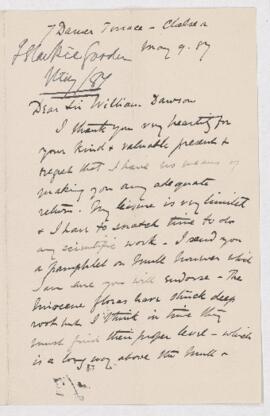 7 Danvers Terrace - Chelsea
May 9. 87
J Starkie Gardner
May / 87
Dear Sir William Dawson
I thank you very heartily for
your kind & valuable present &
regret that I have no means of
making you any adequate
return. My leisure is very limited
& I have to snatch time to do
any scientific work - I send you
a pamphlet on Mull however which
I am sure you will endorse - The
Miocene floras have struck deep
root but I think in time they
must find their proper level - which
is a long way above the Mull &